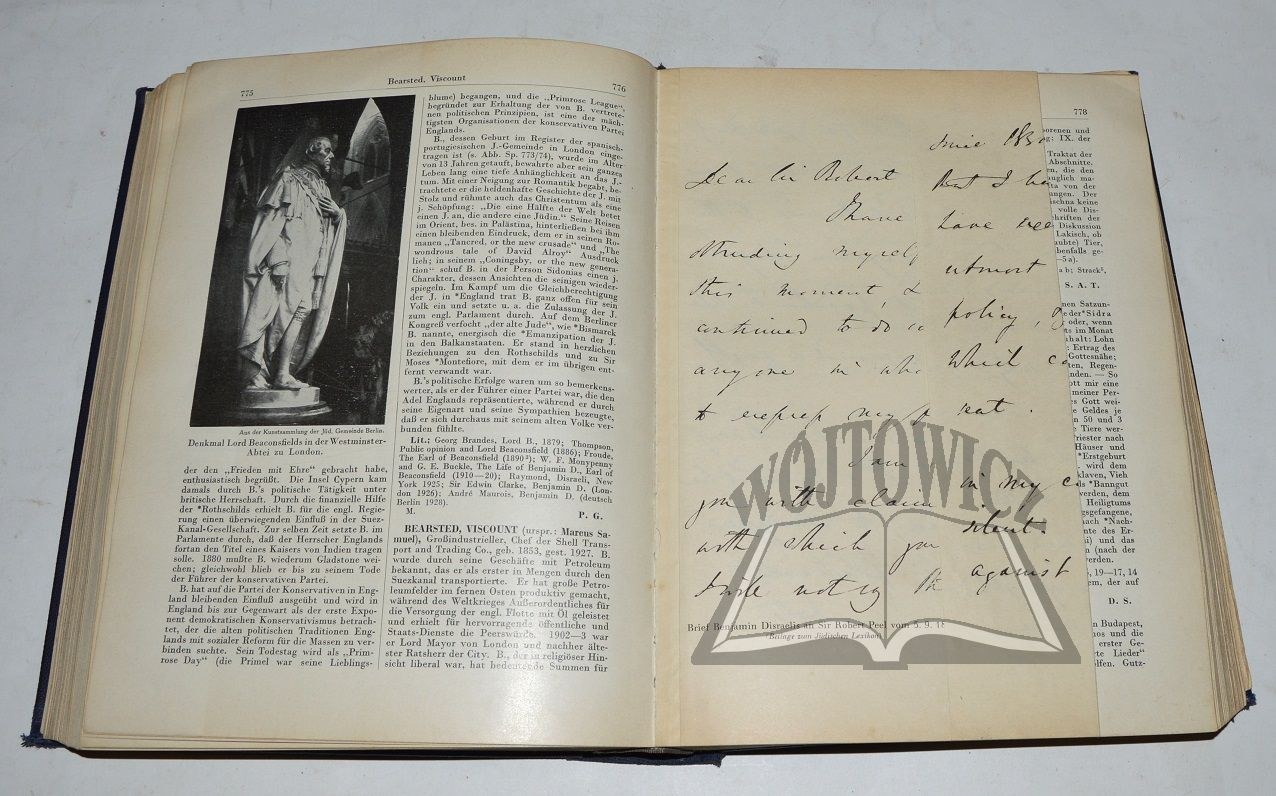 775
Bearsted, Viscount
776
Aus der Kunstsammlung der Jüd. Gemeinde Berlin.
Denkmal Lord Beaconsfields in der Westminster-
Abtei zu London.
der den „Frieden mit Ehre“ gebracht habe,
enthusiastisch begrüßt. Die Insel Cypern kam
damals durch B.'s politische Tätigkeit unter
britische Herrschaft. Durch die finanzielle Hilfe
der *Rothschilds erhielt B. für die engl. Regie-
rung einen überwiegenden Einfluß in der Suez-
Kanal-Gesellschaft. Zur selben Zeit setzte B. im
Parlamente durch, daß der Herrscher Englands
fortan den Titel eines Kaisers von Indien tragen
solle. 1880 mußte B. wiederum Gladstone wei-
chen; gleichwohl blieb er bis zu seinem Tode
der Führer der konservativen Partei.
B. hat auf die Partei der Konservativen in Eng-
land bleibenden Einfluß ausgeübt und wird in
England bis zur Gegenwart als der erste Expo-
nent demokratischen Konservativismus betrach-
tet, der die alten politischen Traditionen Eng-
lands mit sozialer Reform für die Massen zu ver-
binden suchte. Sein Todestag wird als „Prim-
rose Day“ (die Primel war seine Lieblings-
blume) begangen, und die „Primrose League“,
begründet zur Erhaltung der von B. vertrete-
nen politischen Prinzipien, ist eine der mäch-
tigsten Organisationen der konservativen Partei
Englands.
B., dessen Geburt im Register der spanisch-
portugiesischen J.-Gemeinde in London einge-
tragen ist (s. Abb. Sp. 773/74), wurde im Alter
von 13 Jahren getauft, bewahrte aber sein ganzes
Leben lang eine tiefe Anhänglichkeit an das J.-
tum. Mit einer Neigung zur Romantik begabt, be-
trachtete er die heldenhafte Geschichte der J. mit
Stolz und rühmte auch das Christentum als eine
j. Schöpfung: „Die eine Hälfte der Welt betet
einen J. an, die andere eine Jüdin.“ Seine Reisen
im Orient, bes. in Palästina, hinterließen bei ihm
einen bleibenden Eindruck, dem er in seinen Ro-
manen „Tancred, or the new crusade“ und „The
wondrous tale of David Alroy“ Ausdruck
lieh; in seinem „Coningsby, or the new genera-
tion“ schuf B. in der Person Sidonias einen j.
Charakter, dessen Ansichten die seinigen wieder-
spiegeln. Im Kampf um die Gleichberechtigung
der J. in *England trat B. ganz offen für sein
Volk ein und setzte u. a. die Zulassung der J.
zum engl. Parlament durch. Auf dem Berliner
Kongreß verfocht „der alte Jude“, wie *Bismarck
B. nannte, energisch die *Emanzipation der J.
in den Balkanstaaten. Er stand in herzlichen
Beziehungen zu den Rothschilds und zu Sir
Moses *Montefiore, mit dem er im übrigen ent-
fernt verwandt war.
B.'s politische Erfolge waren um so bemerkens-
werter, als er der Führer einer Partei war, die den
Adel Englands repräsentierte, während er durch
seine Eigenart und seine Sympathien bezeugte,
daß er sich durchaus mit seinem alten Volke ver-
bunden fühlte.
Lit.: Georg Brandes, Lord B., 1879; Thompson,
Public opinion and Lord Beaconsfield (1886); Froude,
The Earl of Beaconsfield (1890²); W. F. Monypenny
and G. E. Buckle, The Life of Benjamin D., Earl of
Beaconsfield (1910—20); Raymond, Disraeli, New
York 1925; Sir Edwin Clarke, Benjamin D. (Lon-
don 1926); André Maurois, Benjamin D. (deutsch
Berlin 1928).
M.
P. G.
BEARSTED, VISCOUNT (urspr.: Marcus Sa-
muel), Großindustrieller, Chef der Shell Trans-
port and Trading Co., geb. 1853, gest. 1927. B.
wurde durch seine Geschäfte mit Petroleum
bekannt, das er als erster in Mengen durch den
Suezkanal transportierte. Er hat große Petro-
leumfelder im fernen Osten produktiv gemacht,
während des Weltkrieges Außerordentliches für
die Versorgung der engl. Flotte mit Öl geleistet
und erhielt für hervorragende öffentliche und
Staats-Dienste die Peerswürde. 1902—3 war
er Lord Mayor von London und nachher älte-
ster Ratsherr der City. B., der in religiöser Hin-
sicht liberal war, hat bedeutende Summen für
Dear Sir Robert
I have
obtruding myself
this moment, &
continued to do so
anyone in who
to express my
I am
you with claim
with which you
But I ha
have
utmost
policy,
which co
seat.
in my c
silent.
against
Brief Benjamin Disraelis an Sir Robert Peel vom 5. 9. 18
Beilage zum Jüdischen Lexikon
WÓJTOWICZ
778
orenen und
g: IX. der
Traktat der
Abschnitte.
en, die den
auglich ma-
ta von der
ungen. Der
schna keine
volle Dis-
hriften der
Diskussion
Lakisch, ob
aubte) Tier,
benfalls ge-
—5a).
ab; Strack⁵,
S. A. T.
nen Satzun-
e der *Sidra
oder, wenn
ts im Monat
halt: Lohn
: Ertrag des
Gottesnähe;
ten, Regen-
nden. — So
ott mir eine
meiner Per-
es Gott wei-
Geldes je
n 50 und 3
Tiere wer-
Priester nach
Häuser und
*Erstgeburt
wird dem
klaven, Vieh
*Banngut
werden, dem
Heiligtums
gsgefangene,
nach *Nach-
nte des Er-
i) und das
n (nach der
werden.
, 19—17, 14
em, der auf
D. S.
n Budapest,
mos und die
erster Ge-
rte Lieder“
olfen. Gutz-